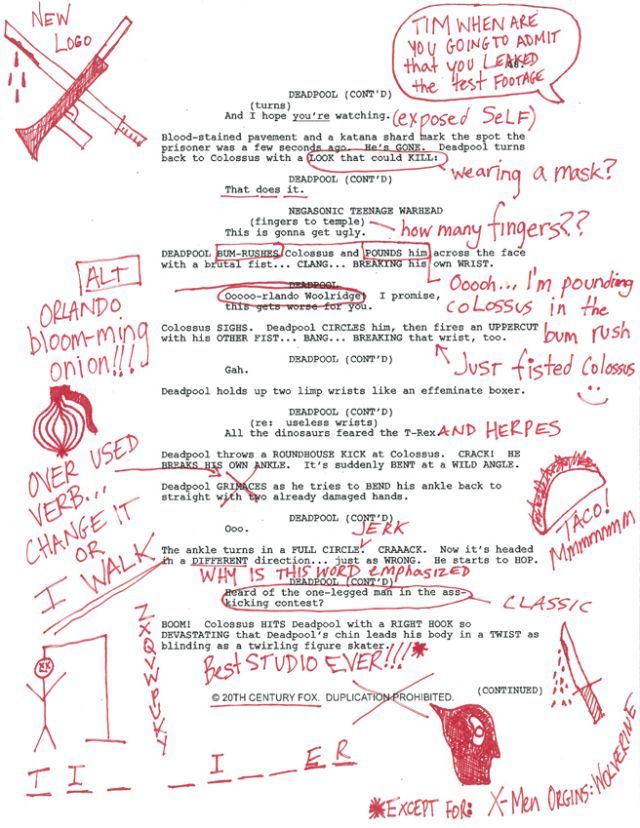 NEW
LOGO
TIM WHEN ARE
YOU GOING TO ADMIT
that YOU LEAKED
the test FOOTAGE
DEADPOOL (CONT'D)
(turns)
And I hope you're watching. (exposed SELF)
Blood-stained pavement and a katana shard mark the spot the
prisoner was a few seconds ago. He's GONE. Deadpool turns
back to Colossus with a LOOK that could KILL:
wearing a mask?
DEADPOOL (CONT'D)
That does it.
NEGASONIC TEENAGE WARHEAD
(fingers to temple)
how many fingers??
This is gonna get ugly.
DEADPOOL BUM-RUSHES Colossus and POUNDS him across the face
with a brutal fist... CLANG... BREAKING his own WRIST.
ALT
ORLANDO
bloom-ming
onion!!!
DEADPOOL
Ooooo-rlando Woolridge I promise,
this gets worse for you.
Ooooh... I'm pounding
coLossus in the
bum rush
Colossus SIGHS. Deadpool CIRCLES him, then fires an UPPERCUT
with his OTHER FIST... BANG... BREAKING that wrist, too.
Just fisted Colossus
DEADPOOL (CONT'D)
Gah.
Deadpool holds up two limp wrists like an effeminate boxer.
DEADPOOL (CONT'D)
(re: useless wrists)
All the dinosaurs feared the T-Rex AND HERPES
Deadpool throws a ROUNDHOUSE KICK at Colossus. CRACK! HE
BREAKS HIS OWN ANKLE. It's suddenly BENT at a WILD ANGLE.
OVER USED
VERB...
CHANGE IT
OR
I WALK
Deadpool GRIMACES as he tries to BEND his ankle back to
straight with two already damaged hands.
TACO!
Mmmmmmm
DEADPOOL (CONT'D)
Ooo.
JERK
The ankle turns in a FULL CIRCLE. CRAAACK. Now it's headed
in a DIFFERENT direction... just as WRONG. He starts to HOP.
WHY IS THIS WORD emphasized
DEADPOOL (CONT'D)
Heard of the one-legged man in the ass-
kicking contest?
CLASSIC
BOOM! Colossus HITS Deadpool with a RIGHT HOOK so
DEVASTATING that Deadpool's chin leads his body in a TWIST as
blinding as a twirling figure skater.
Best STUDIO EVER!!!*
© 20TH CENTURY FOX. DUPLICATION PROHIBITED.
(CONTINUED)
Z
X
Q
V
W
P
U
K
Y
T I _ _ I _ E R
*EXCEPT FOR: X-Men ORGINS: WOLVERINE